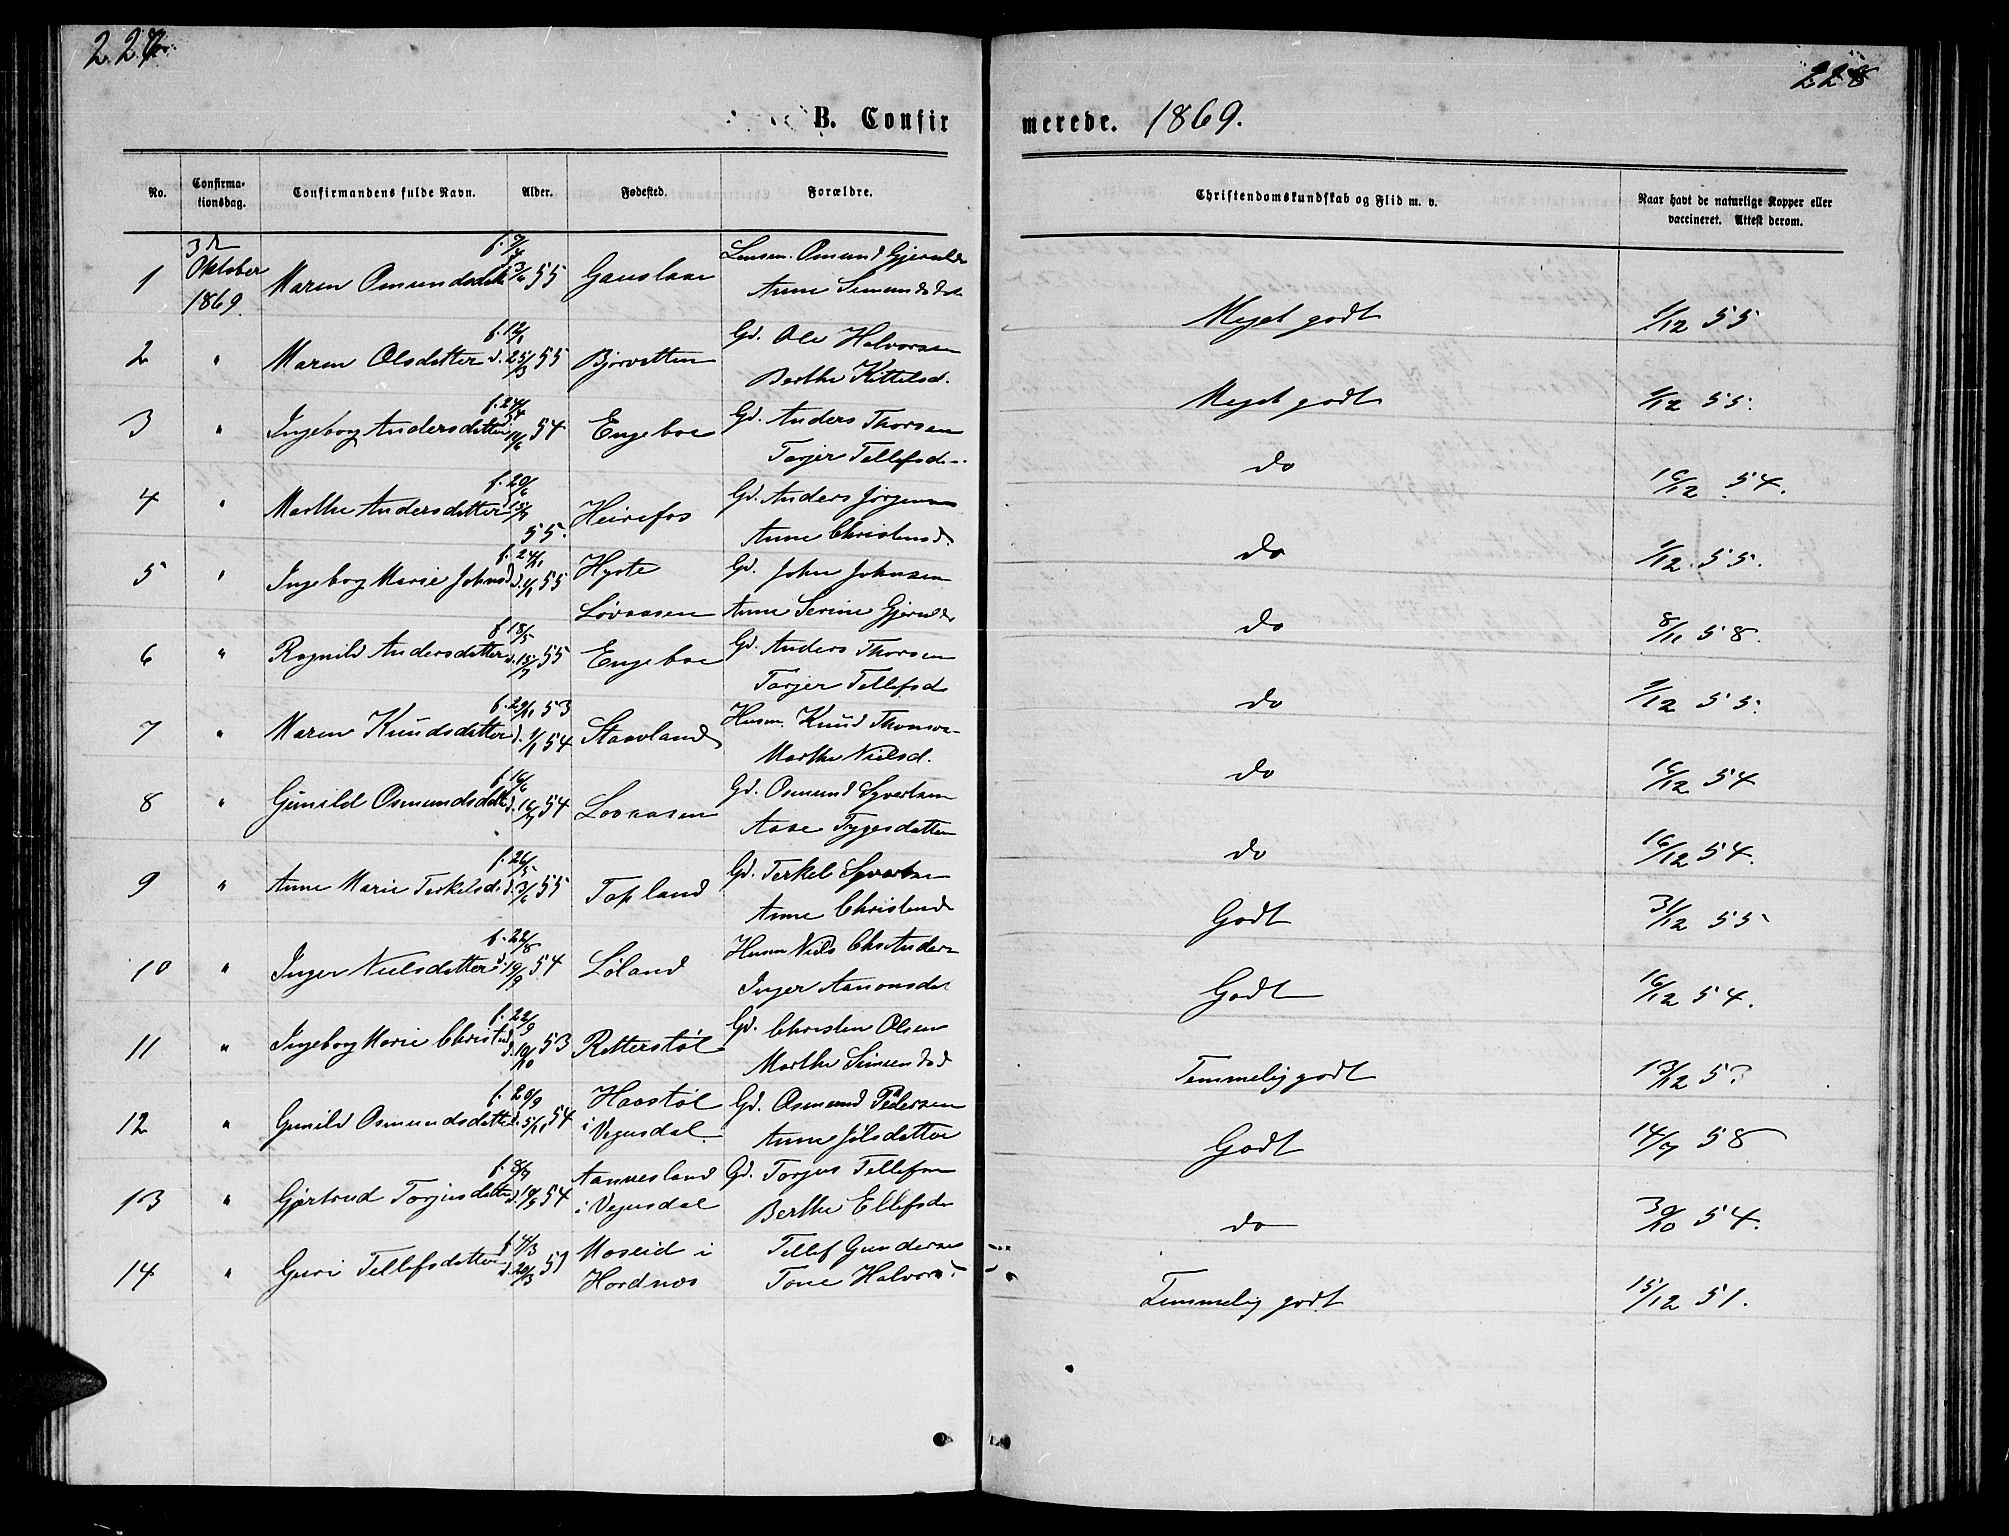 227
228
B. Confir
merede. 1869.
No.
Confirma-
tionsdag.
Confirmandens fulde Navn.
Alder.
Fødested.
Forældre.
Christendomskundskab og Flid m. v.
Naar havt de naturlige Kopper eller
vaccineret. Attest derom.
3d Oktober 1869.
1 Maren Osmundsdatt 55 Gauslaae
Osmund Gjeruldsen
Anne Simundsdat
Meget godt 1/12 55
2 " Maren Olsdatter f. 12/1 d. 25/3 55 Bjorvatten
Gd. Ole Halvorsen
Berthe Kittelsd.
Meget godt 1/12 55.
3 " Ingeborg Andersdatter f. 24/4 54 Engeboe
Gd. Anders Thorsen
Torjer Tellefsd.
do 16/12 54.
4 " Marthe Andersdatter f. 20/6 55. Heirefos
Gd. Anders Jörgensen
Anne Christensd.
do 1/12 55.
5 " Ingeborg Marie Johnsd f. 24/1 55 Hyrte
Løvaasen
Gd. John Johnsen
Anne Serine Gjerulds
do 8/11 58.
6 " Rognild Andersdatter f. 18/5 d. 15/7 55 Engeboe
Gd. Anders Thorsen
Torjer Tellefsd
do 1/12 55.
7 " Maren Knudsdatter f. 29/11 53 d. 1/1 54 Staavland
Husm. Knud Thomsen
Marthe Nielsd.
do 16/12 54
8 " Gunild Osmundsdatt f. 16/6 d. 16/7 54 Lovaasen
Gd. Osmund Syvertsen
Aase Tygesdatter
do 16/12 54.
9 " Anne Marie Terkelsd. f. 26/5 d. 3/6 55 Topland
Gd. Terkel Syvertsen
Anne Christensd
Godt 31/12 55
10 " Inger Nielsdatter f. 22/8 d. 19/9 54 Løland
Husm Niels Chr Anders
Inger Aanonsdat
Godt 16/12 54.
11 " Ingeborg Marie Christensd f. 22/9 d. 10/10 53 Retterstøl
Gd. Christen Olsen
Marthe Simundsd
Temmelig godt 53
12 " Gunild Osmundsdatter f. 20/9 d. 5/11 54 Haastøl
i Vegusdal.
Gd. Osmund Pedersen
Anne Jölsdatter
Godt 14/7 58
13 " Gjertrud Torjusdatter 54 Aannesland
i Vegusdal
Gd. Torjus Tellefsen
Berthe Ellefsdr
do 30/10 54.
14 " Guri Tellefsdatter f. 4/3 d. 20/3 51 Moseid i
Hordnes
Tellef Gundersen
Tone Halvors.
Temmelig godt 15/12 51.